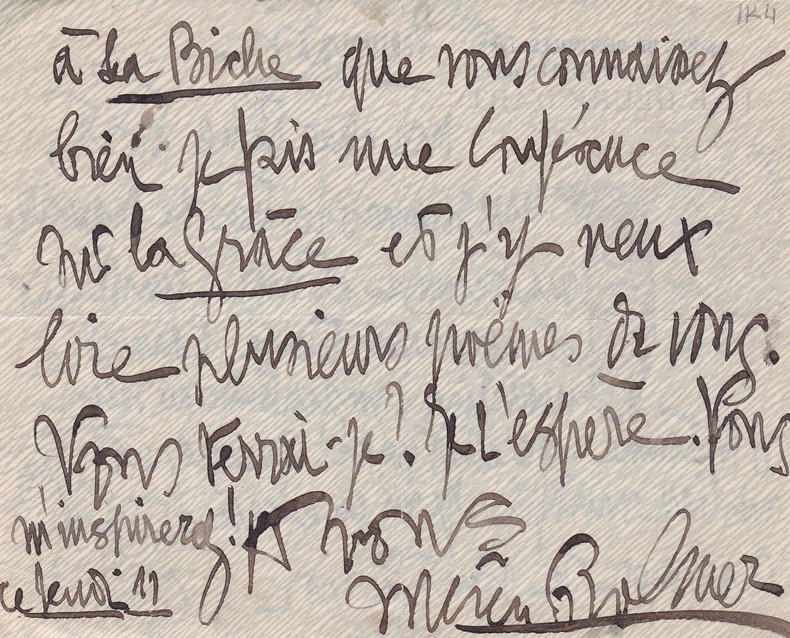 1K4
à La Biche que vous connaissez
bien. je fais une Conférence
sur la Grâce et j'y veux
lire plusieurs poëmes de vous.
Vous verrai-je? Je L'espère. Vous
m'inspirerez! A vous
ce Jeudi 11